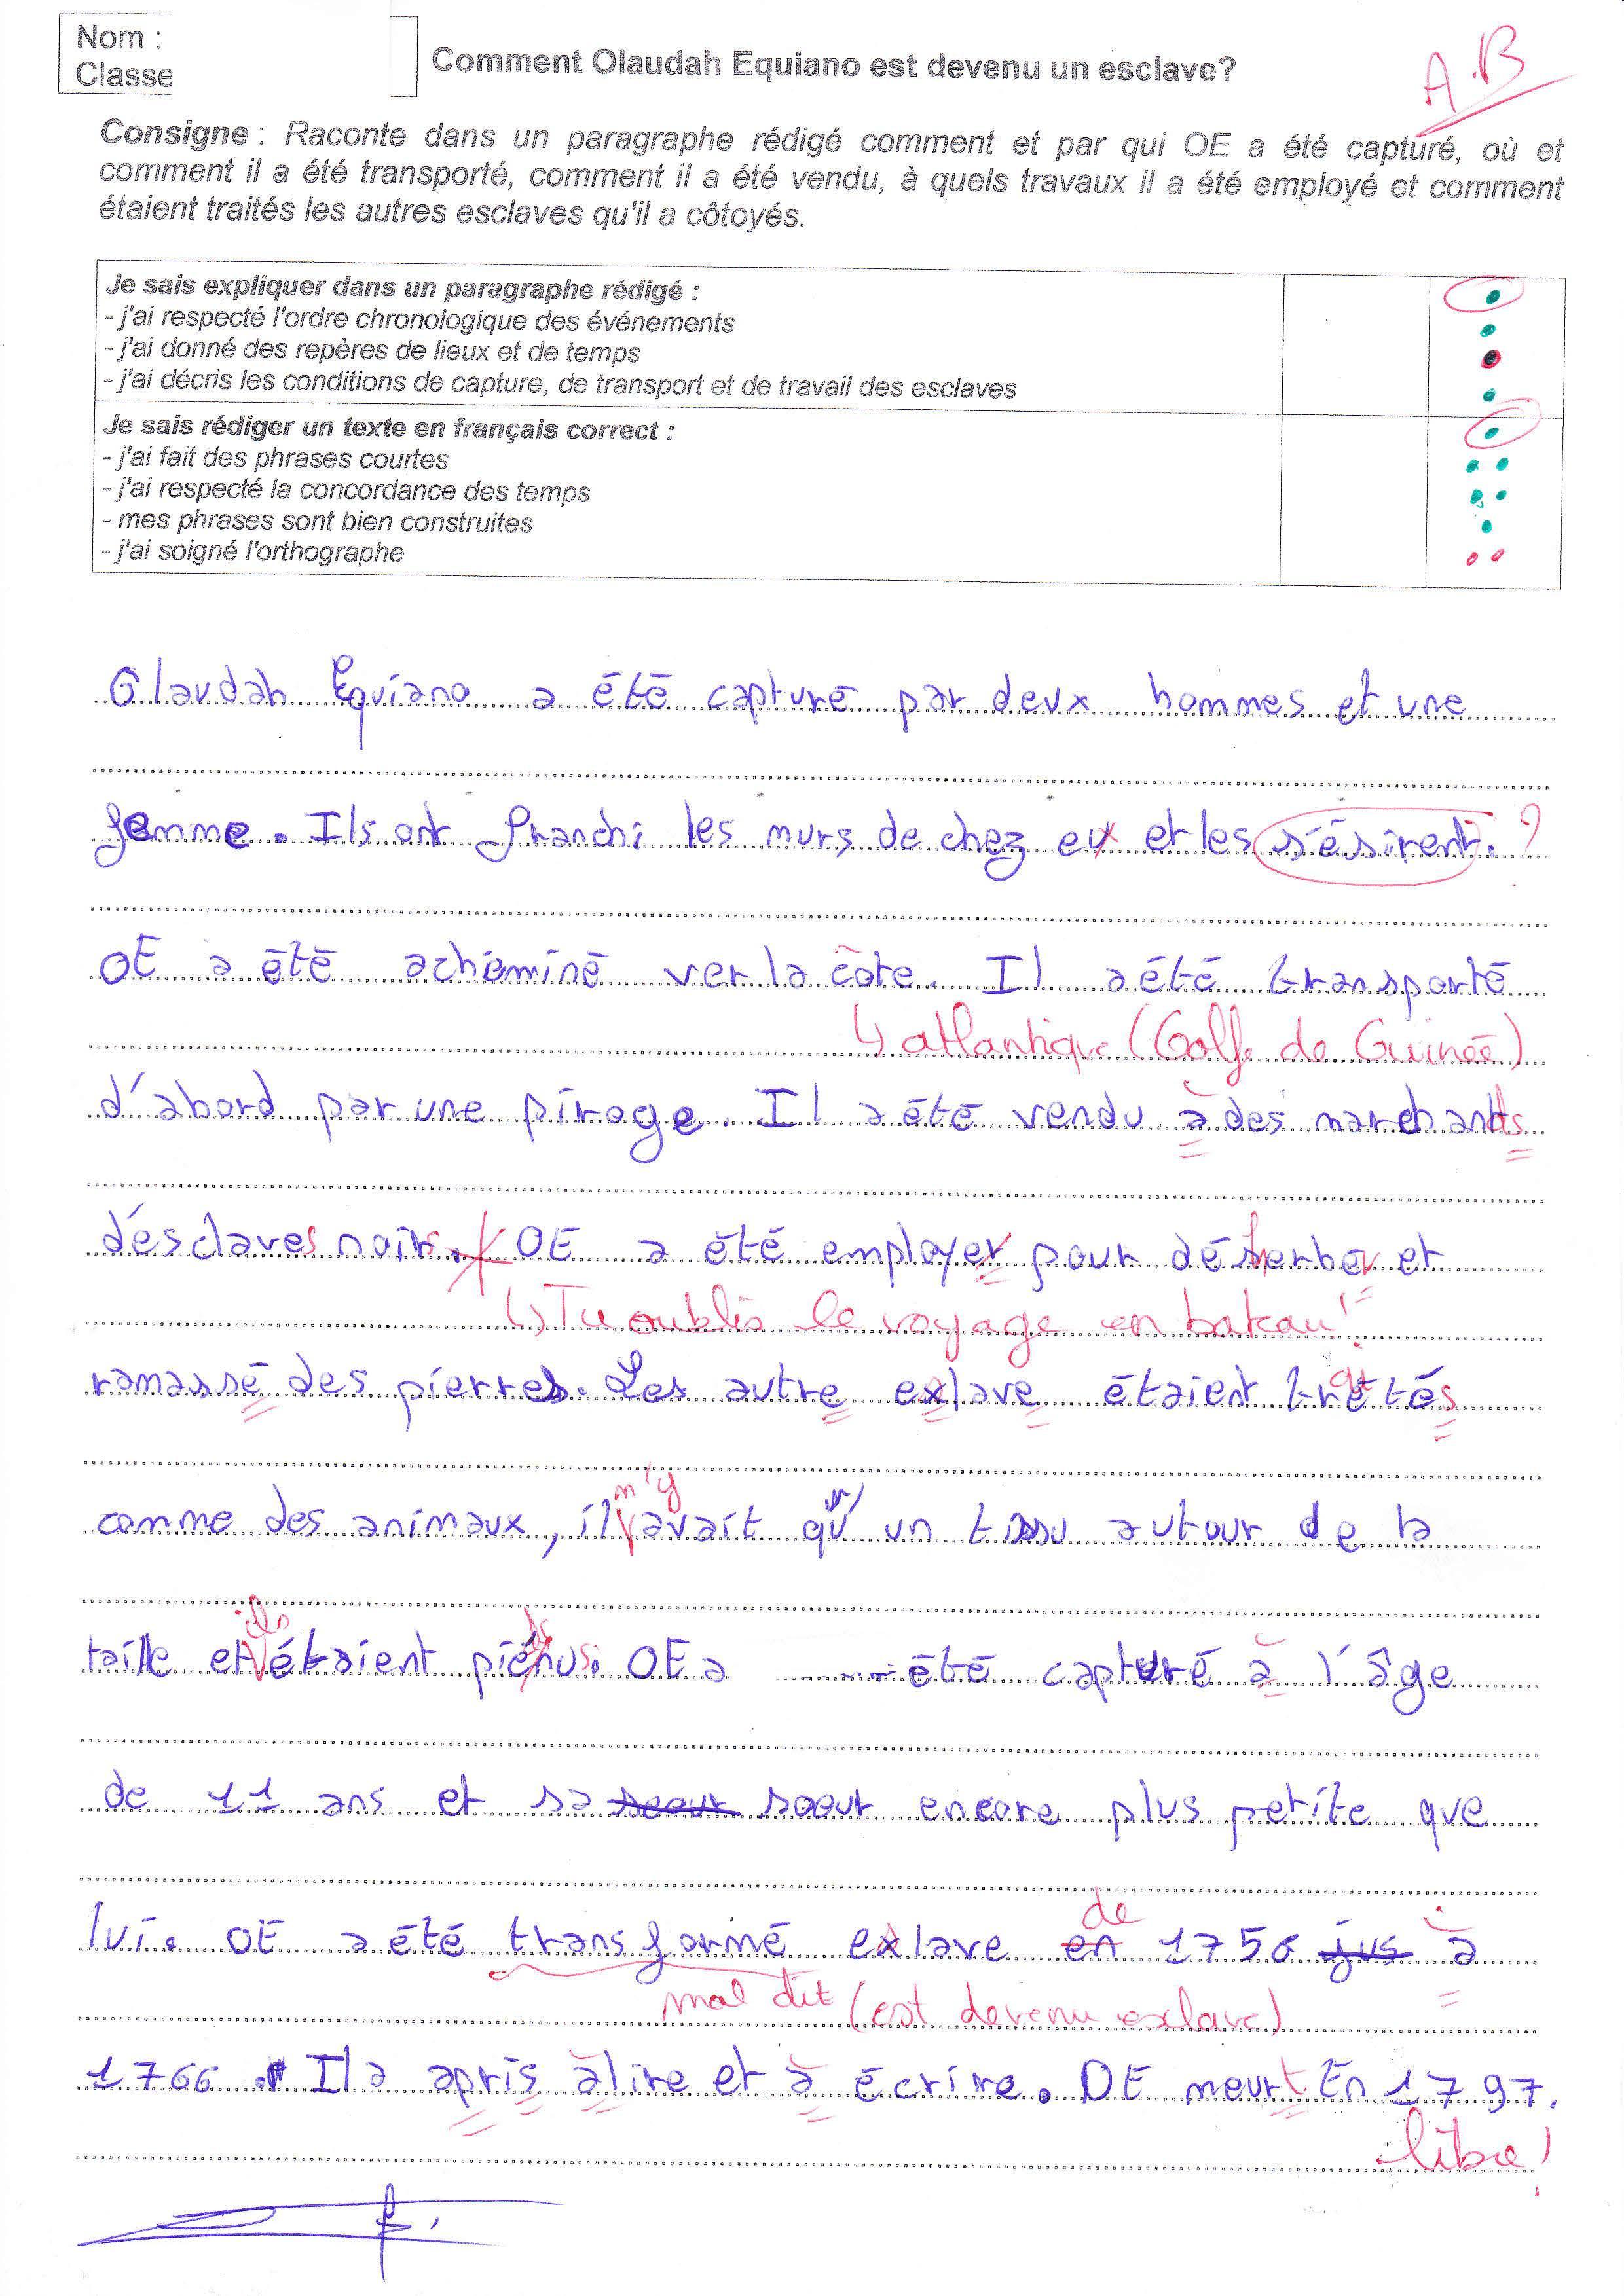 Nom :
Classe
Comment Olaudah Equiano est devenu un esclave?
A.B
Consigne : Raconte dans un paragraphe rédigé comment et par qui OE a été capturé, où et
comment il a été transporté, comment il a été vendu, à quels travaux il a été employé et comment
étaient traités les autres esclaves qu'il a côtoyés.
Je sais expliquer dans un paragraphe rédigé :
- j'ai respecté l'ordre chronologique des événements
- j'ai donné des repères de lieux et de temps
- j'ai décris les conditions de capture, de transport et de travail des esclaves
Je sais rédiger un texte en français correct :
- j'ai fait des phrases courtes
- j'ai respecté la concordance des temps
- mes phrases sont bien construites
- j'ai soigné l'orthographe
Olaudah Equiano a été capturé par deux hommes et une
femme. Ils ont franchi les murs de chez eux et les s'ésirent. ?
OE a été achéminé ver la côte. Il a été transporté
↳ atlantique (Golfe de Guinée)
d'abord par une piroge. Il a été vendu à des marchands
d'ésclaves noirs. OE a été employer pour désherber et
↳ Tu oublis le voyage en bateau !
ramassé des pierres. Les autre exlave étaient trètés
ai
n'y
comme des animaux, il avait qu'un tissu autour de la
ils
taille et étaient piénus. OE a été capturé à l'âge
de 11 ans et sa soeur soeur encore plus petite que
de
lui. OE a été transformé exlave en 1756 jus à
mal dit (est devenu esclave)
1766. Il a apris à lire et à écrire. OE meurt En 1797.
libre !